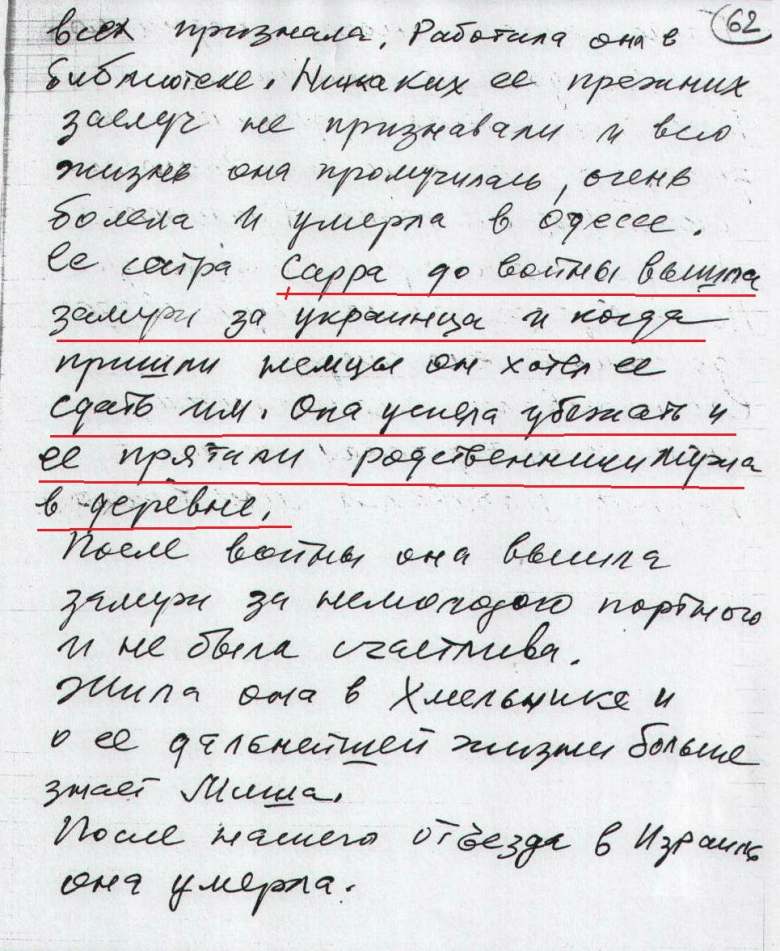 62
всех признала. Работала она в
библиотеке. Никаких ее прежних
заслуг не признавали и всю
жизнь она промучилась, очень
болела и умерла в Одессе.
Ее сестра Сарра до войны вышла
замуж за украинца и когда
пришли немцы он хотел ее
сдать им. Она успела убежать и
ее прятали родственники мужа
в деревне.
После войны она вышла
замуж за немолодого портного
и не была счастлива.
Жила она в Хмельнике и
о ее дальнейшей жизни больше
знает Миша.
После нашего отъезда в Израиль
она умерла.